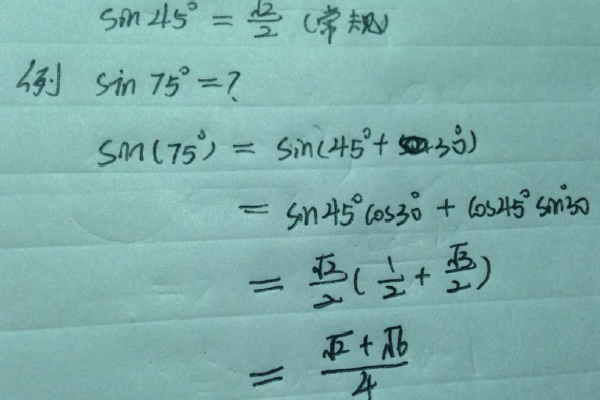 sin 45° = √2/2 (常规)
例 sin 75° = ?
sin(75°) = sin(45° + 30°)
= sin45°cos30° + cos45°sin30°
= √2/2 ( 1/2 + √3/2 )
= (√2 + √6)/4